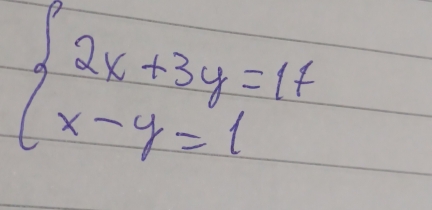 2x+3y=17
x-y=1